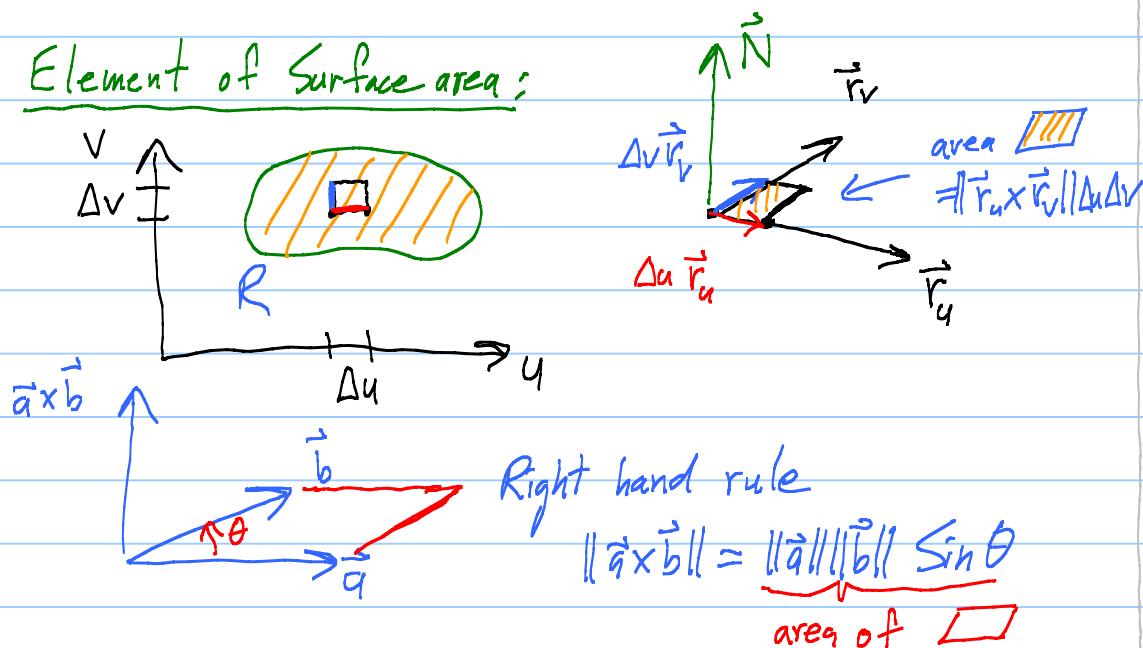 Element of Surface area:
V
Δv
R
Δu
u
N⃗
r⃗_v
Δv r⃗_v
area
=||r⃗_u x r⃗_v||ΔuΔv
Δu r⃗_u
r⃗_u
a⃗ x b⃗
b⃗
θ
a⃗
Right hand rule
||a⃗ x b⃗|| = ||a⃗|| ||b⃗|| Sin θ
area of